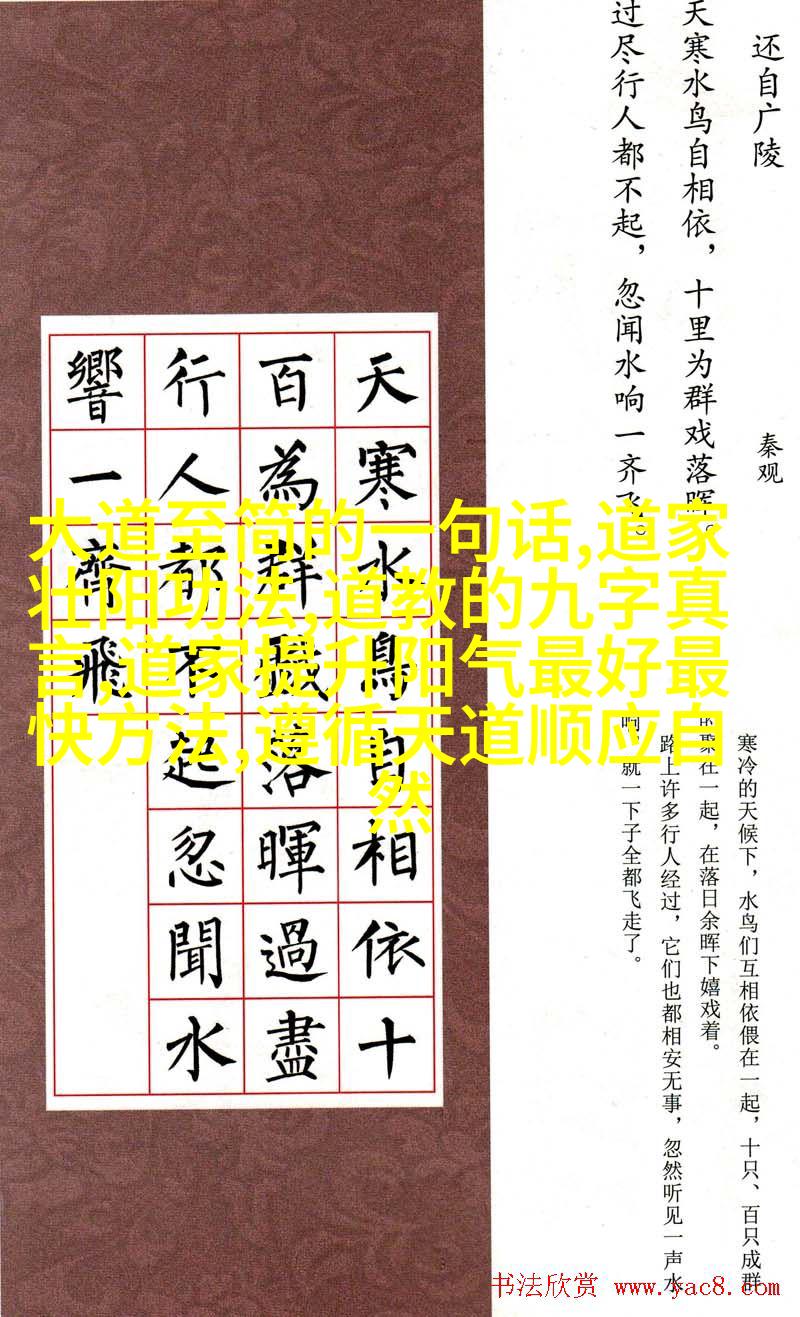 还自广陵
秦观
天寒水鸟自相依，十里为群戏落晖。
过尽行人都不起，忽闻水响一齐飞。
天寒水鳥自相依十
百為群戲落暉過盡
行人都不起忽聞水
響一齊飛
大道至简的一句话,道家
壮阳功法,道教的九字真
言,道家提升阳气最好最
快方法,遵循天道顺应自
然
寒冷的天候下，水鸟们互相依偎在一起，十只、百只成群
的聚在一起，在落日余晖下嬉戏着。
路上许多行人经过，它们也都相安无事，忽然听见一声水
响，就一下子全都飞走了。
书法欣赏 www.yac8.com